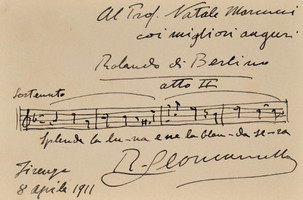 Al Prof. Natale Marcucci
coi migliori auguri
Rolando di Berlino
atto II
Sostenuto
Splende la lu-na e ne la blan-da se-ra
Firenze
8 aprile 1911
R. Leoncavallo